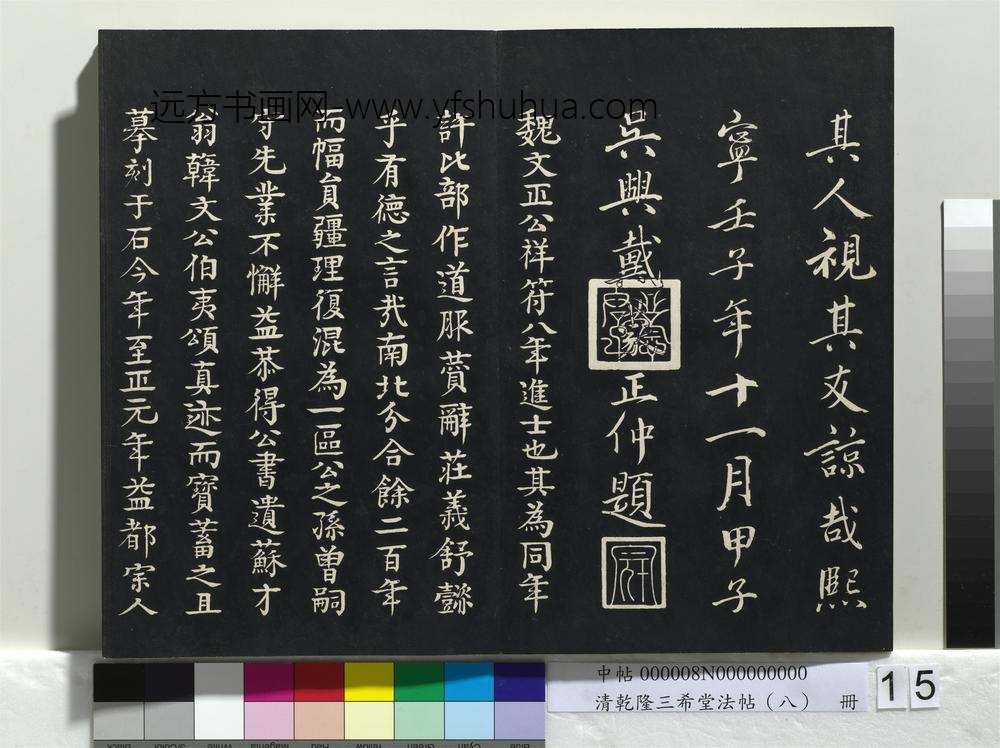 其人視其友諒哉熙
寧壬子年十一月甲子
吳興戴正仲題
魏文正公祥符八年進士也其為同年
許比部作道服贊辭莊義舒懿
乎有德之言哉南北分合餘二百年
而幅員疆理復混為一區公之孫曾嗣
守先業不懈益恭得公書遺蘇才
翁韓文公伯夷頌真迹而寶蓄之且
摹刻于石今年至正元年益都宗人
远方书画网-www.yfshuhua.com
中帖 000008N000000000
清乾隆三希堂法帖（八） 冊
15
Black
3/Color
White
Magenta
Red
Yellow
Green
Cyan
Blue